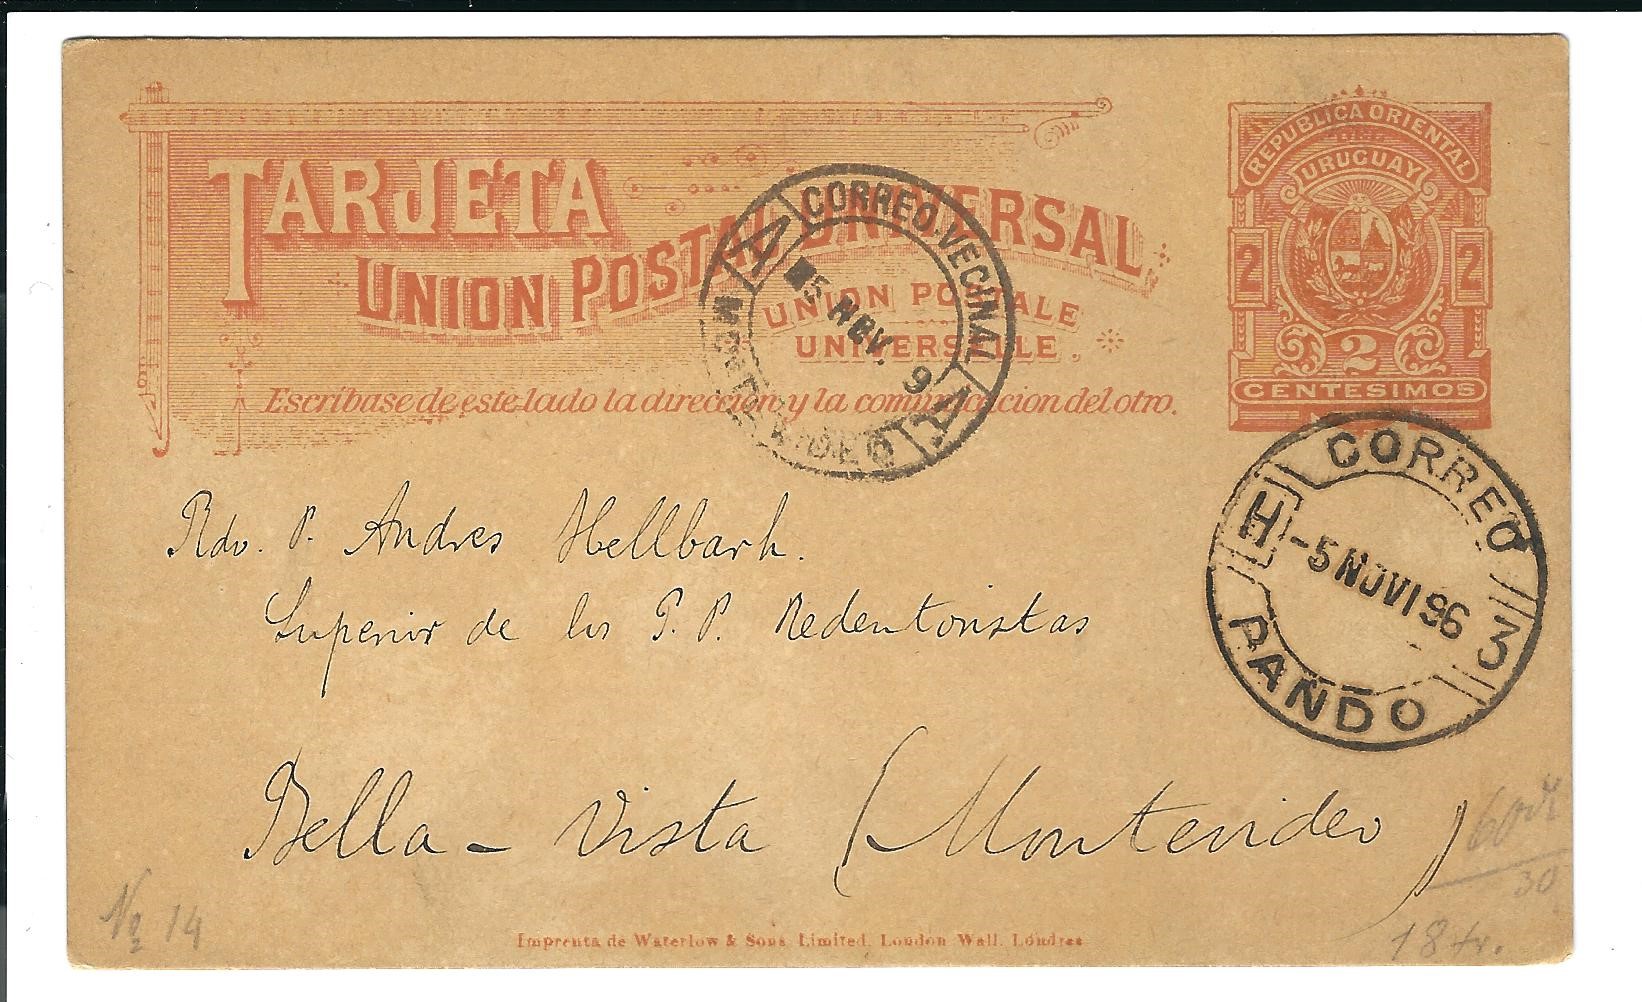 TARJETA
UNION POSTAL UNIVERSAL
UNION POSTALE
UNIVERSELLE.
Escríbase de este lado la dirección y la comunicacion del otro.
REPUBLICA ORIENTAL
URUGUAY
2 2
2
CENTESIMOS
CORREO VECINAL
A
5 NOV. 9
MONTEVIDEO
CORREO
H
-5 NOV 96
3
PANDO
Rdo. P. Andres Hellbach.
Superior de los P. P. Redentoristas
Bella - Vista (Montevideo)
Nº 14
60
30
18 fr.
Imprenta de Waterlow & Sons Limited. London Wall. Londres